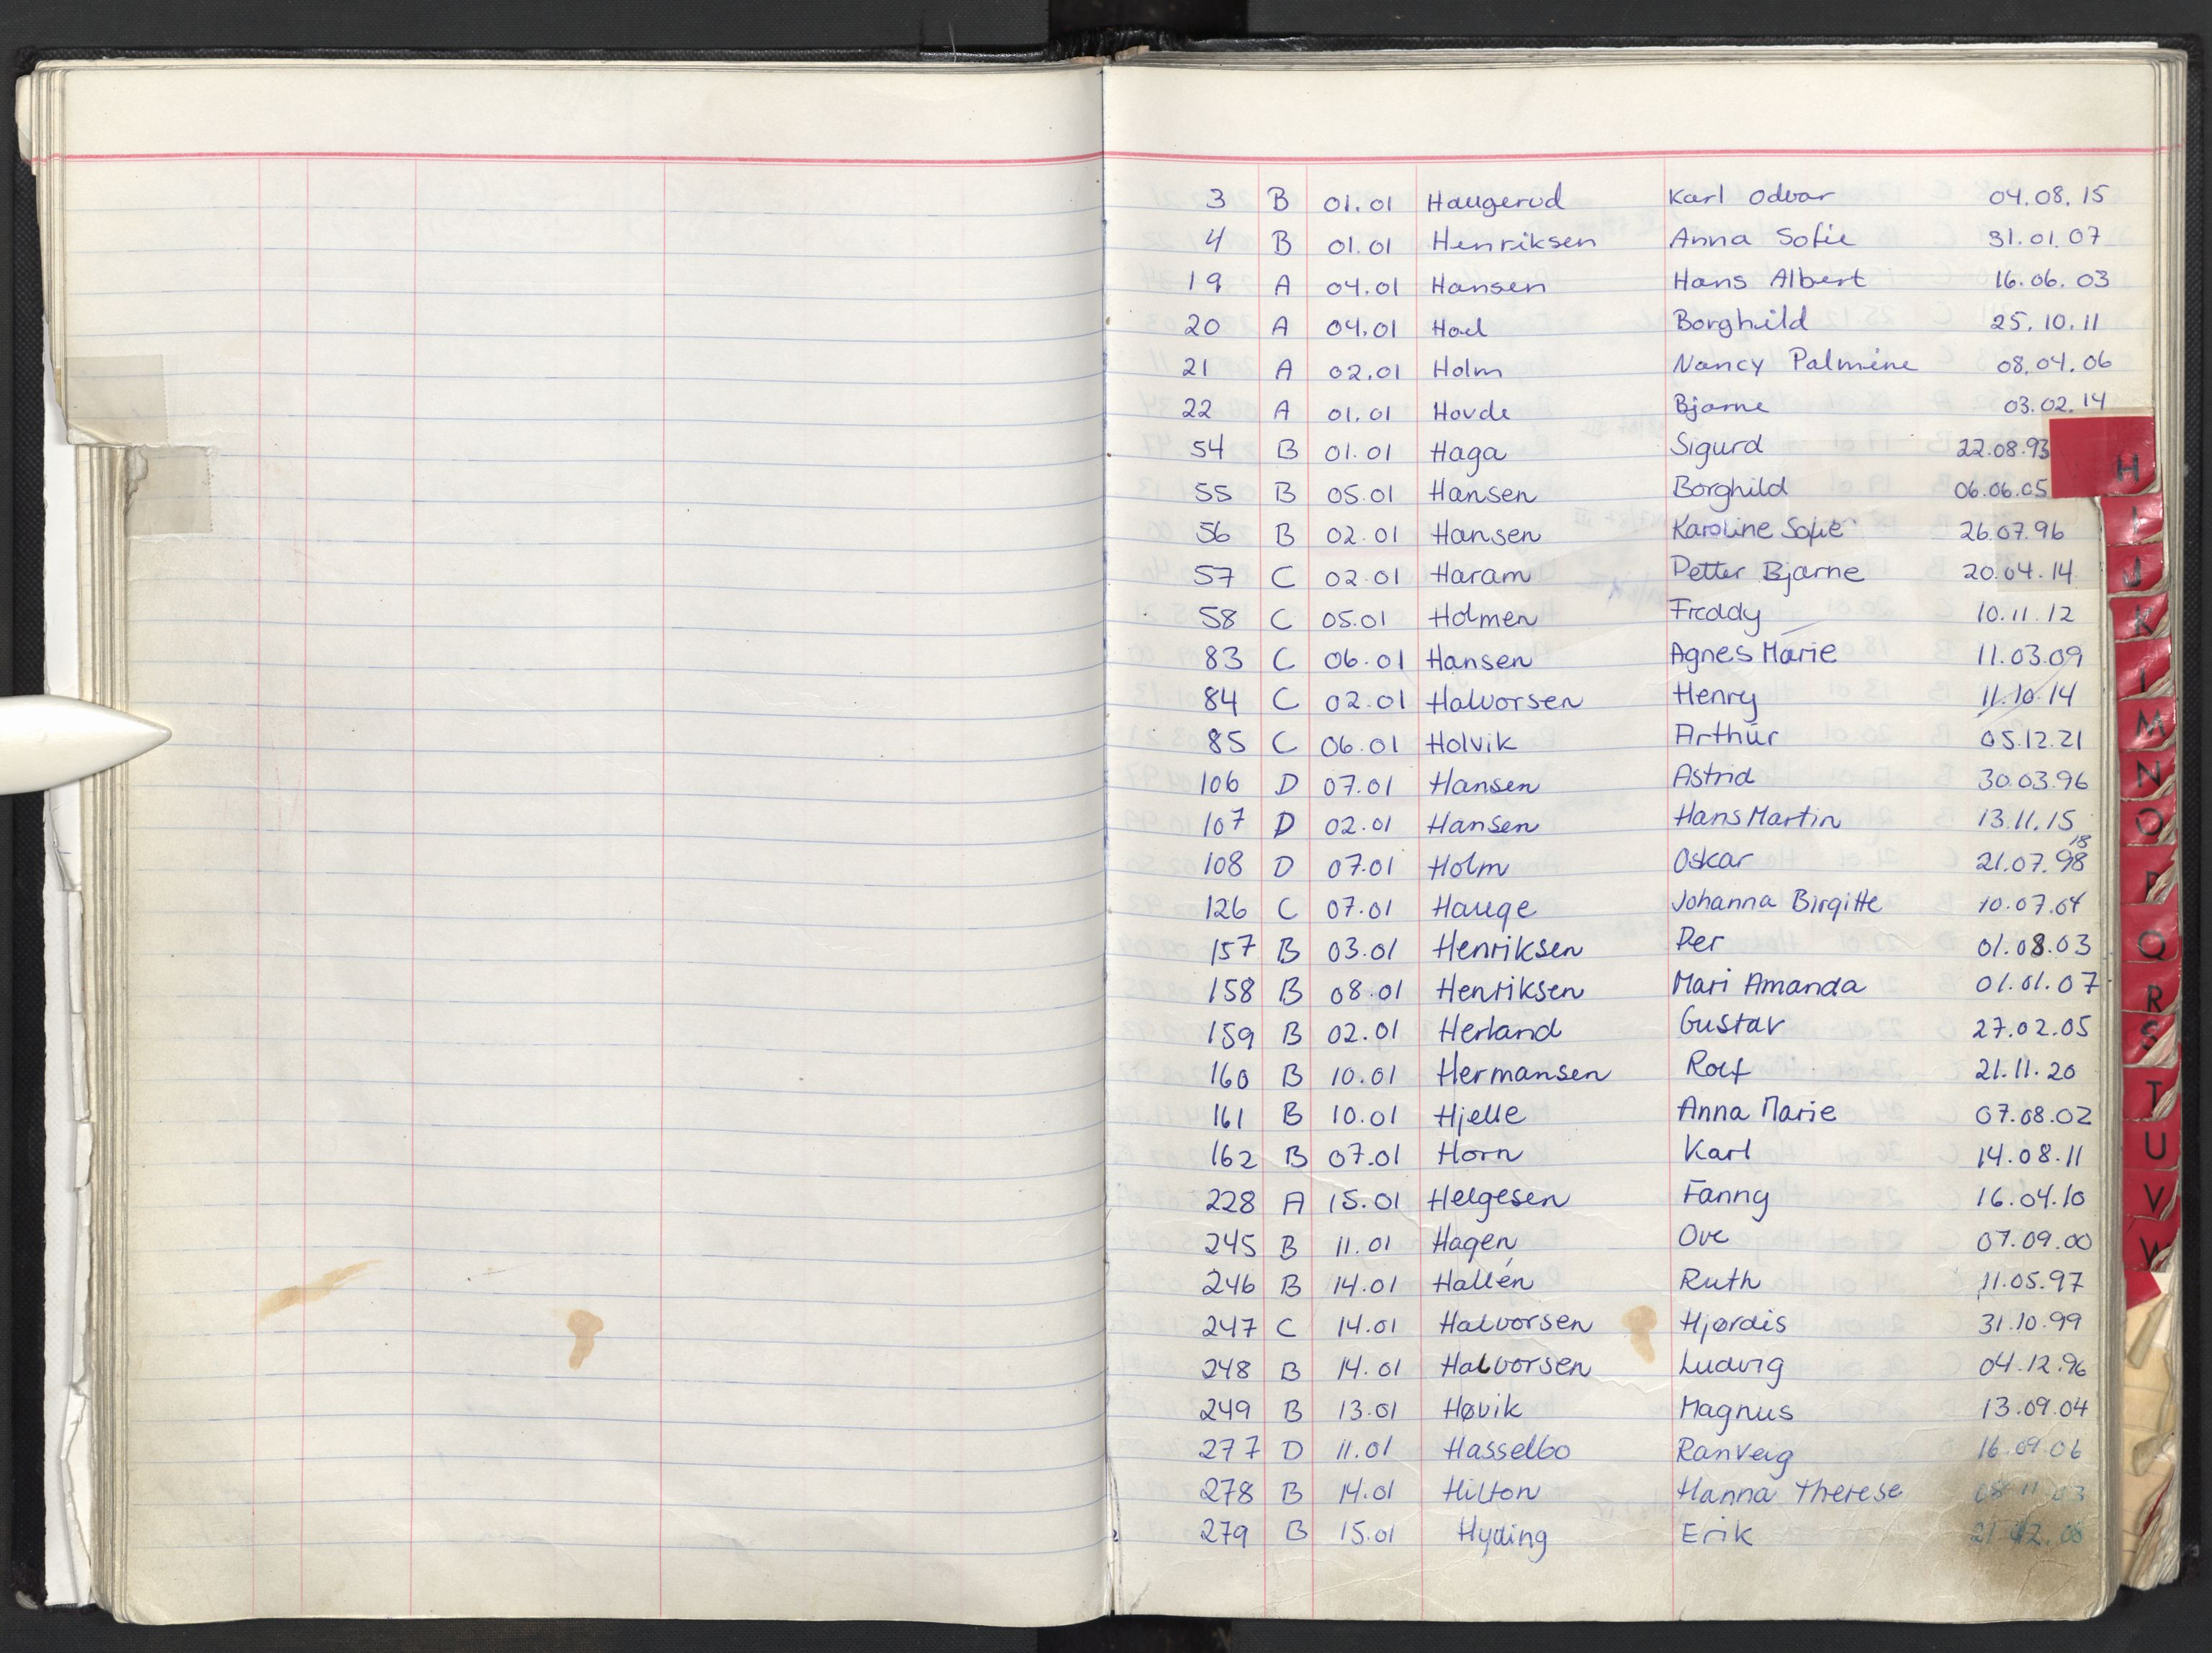 3 B 01.01 Haugerud Karl Odvar 04.08.15
4 B 01.01 Henriksen Anna Sofie 31.01.07
19 A 04.01 Hansen Hans Albert 16.06.03
20 A 04.01 Hoel Borghild 25.10.11
21 A 02.01 Holm Nancy Palmine 08.04.06
22 A 01.01 Hovde Bjarne 03.02.14
54 B 01.01 Haga Sigurd 22.08.93
55 B 05.01 Hansen Borghild 06.06.05
56 B 02.01 Hansen Karoline Sofie 26.07.96
57 C 02.01 Haram Petter Bjarne 20.04.14
58 C 05.01 Holmen Freddy 10.11.12
83 C 06.01 Hansen Agnes Marie 11.03.09
84 C 02.01 Halvorsen Henry 11.10.14
85 C 06.01 Holvik Arthur 05.12.21
106 D 07.01 Hansen Astrid 30.03.96
107 D 02.01 Hansen Hans Martin 13.11.15
108 D 07.01 Holm Oskar 21.07.98 18
126 C 07.01 Hauge Johanna Birgitte 10.07.04
157 B 03.01 Henriksen Per 01.08.03
158 B 08.01 Henriksen Mari Amanda 01.01.07
159 B 02.01 Herland Gustav 27.02.05
160 B 10.01 Hermansen Rolf 21.11.20
161 B 10.01 Hjelle Anna Marie 07.08.02
162 B 07.01 Horn Karl 14.08.11
228 A 15.01 Helgesen Fanny 16.04.10
245 B 11.01 Hagen Ove 07.09.00
246 B 14.01 Hallén Ruth 11.05.97
247 C 14.01 Halvorsen Hjørdis 31.10.99
248 B 14.01 Halvorsen Ludvig 04.12.96
249 B 13.01 Høvik Magnus 13.09.04
277 D 11.01 Hasselbo Ranveig 16.09.06
278 B 14.01 Hilton Hanna Therese 08.11.03
279 B 15.01 Hyding Erik
H
I
J
K
L
M
N
O
P
Q
R
S
T
U
V
W